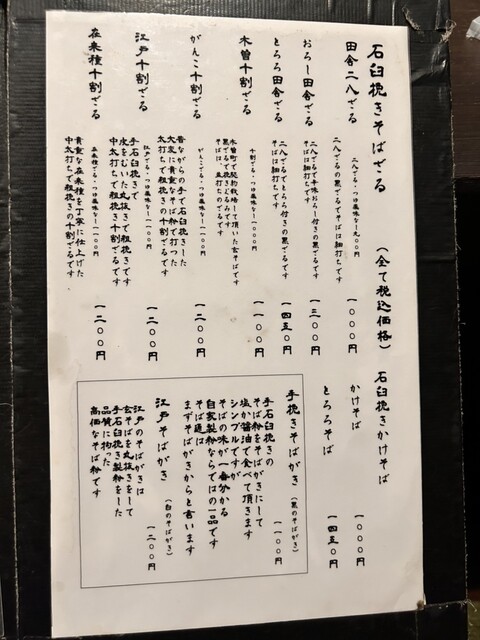 石臼挽きそばざる （全て税込価格）
田舎二八ざる
二八ざる・つけ塩味なし九〇〇円
二八ざるの黒ざるでそばは細打ちです
一〇〇〇円
おろし田舎ざる
二八ざるで辛味おろし付きの黒ざるです
そばは細打ちです
一三〇〇円
とろろ田舎ざる
二八ざるでとろろ付きの黒ざるです
そばは細打ちです
一四五〇円
木曽十割ざる
十割ざる・つけ塩味なし一〇〇〇円
木曽町で契約栽培して頂いた玄そばです
黒ざるで挽きぐるみです
そばは、並打ちのざるです
一一〇〇円
がんこ十割ざる
がんこざる・つけ塩味なし一一〇〇円
昔ながらの手で石臼挽きした
大変に貴重なそば粉で打つた
太打ちで粗挽きの十割ざるです
一二〇〇円
江戸十割ざる
江戸ざる・つけ塩味なし一一〇〇円
手石臼挽きで
皮をむいた丸抜きで粗挽きです
中太打ちで粗挽き十割ざるです
一二〇〇円
在来種十割ざる
在来種ざる・つけ塩味なし一一〇〇円
貴重な在来種を丁寧に仕上げた
中太打ちで粗挽きの十割ざるです
一二〇〇円
石臼挽きかけそば
かけそば
一〇〇〇円
とろろそば
一四五〇円
手挽きそばがき （黒のそばがき）
一一〇〇円
手石臼挽きの
そば粉をそばがきにして
塩か醤油で食べて頂きます
シンプルですが
そばの味が一番分かる
自家製粉ならではの一品です
そば通は
まずそばがきからと言います
江戸そばがき （白のそばがき）
一二〇〇円
江戸のそばがきは
玄そばを丸抜きをして
手石臼挽き製粉をした
品質に拘った
高価なそば粉です